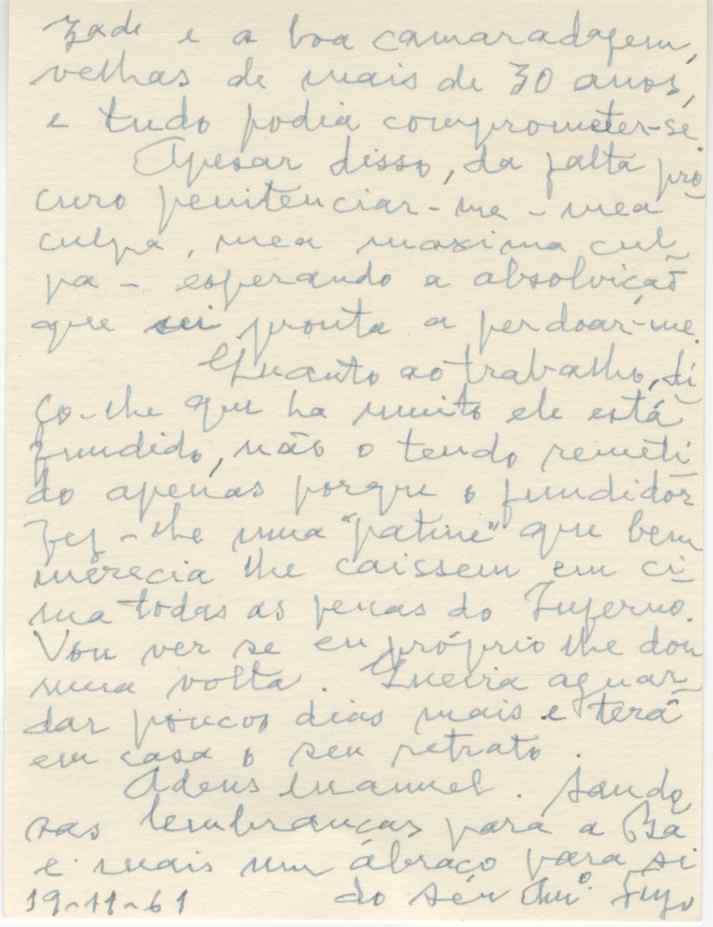 zade e a boa camaradagem,
velhas de mais de 30 anos,
e tudo podia comprometer-se.
Apesar disso, da falta pro
curo penitenciar-me - mea
culpa, mea maxima cul
pa - esperando a absolvição
que sei pronta a perdoar-me.
Quanto ao trabalho, di
ço-lhe que ha muito ele está
fundido, não o tendo remeti
do apenas porque o fundidor
fez-lhe uma "patine" que bem
merecia lhe caissem em ci
ma todas as penas do Inferno.
Vou ver se eu próprio lhe dou
uma volta. Queira aguar
dar poucos dias mais e terá
em casa o seu retrato.
Adeus Manuel. Saudo
sas lembranças para a
e mais um abraço para si
do seu
19-11-61